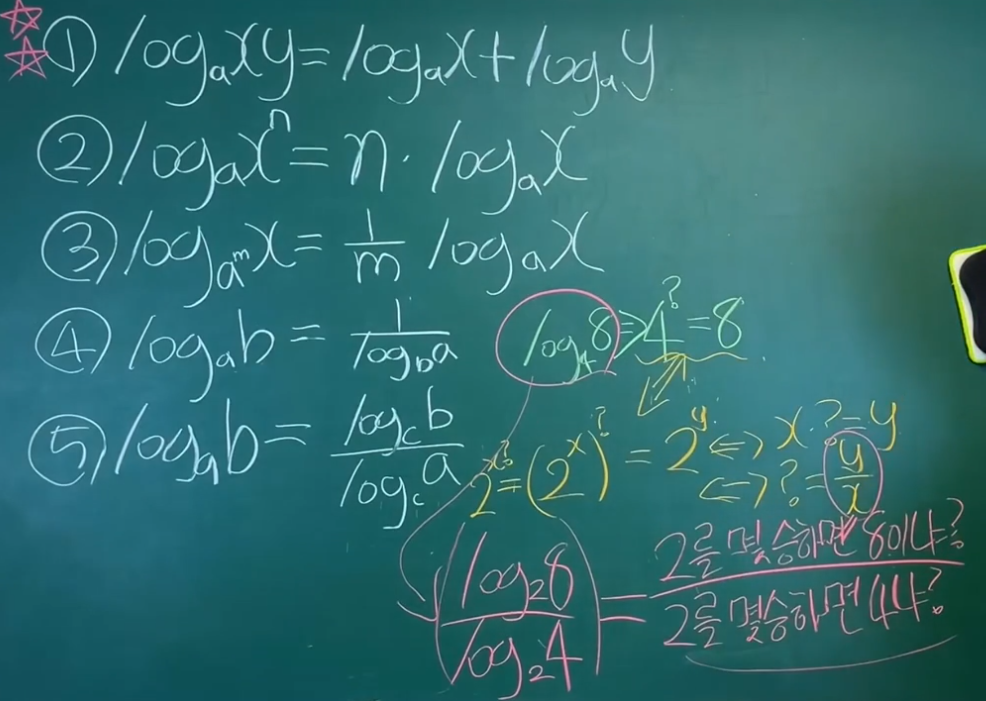 ① logₐxy = logₐx + logₐy
② logₐxⁿ = n · logₐx
③ log_{a^m}x = \frac{1}{m} logₐx
④ logₐb = \frac{1}{log_b a}
log₄8 ⇒ 4^? = 8
⑤ logₐb = \frac{log_c b}{log_c a}
2^{x?} = (2^x)^? = 2^y ⇔ x·? = y
⇔ ? = \frac{y}{x}
\frac{log₂8}{log₂4} = \frac{2를 몇 승하면 8이냐?}{2를 몇승하면 4냐?}